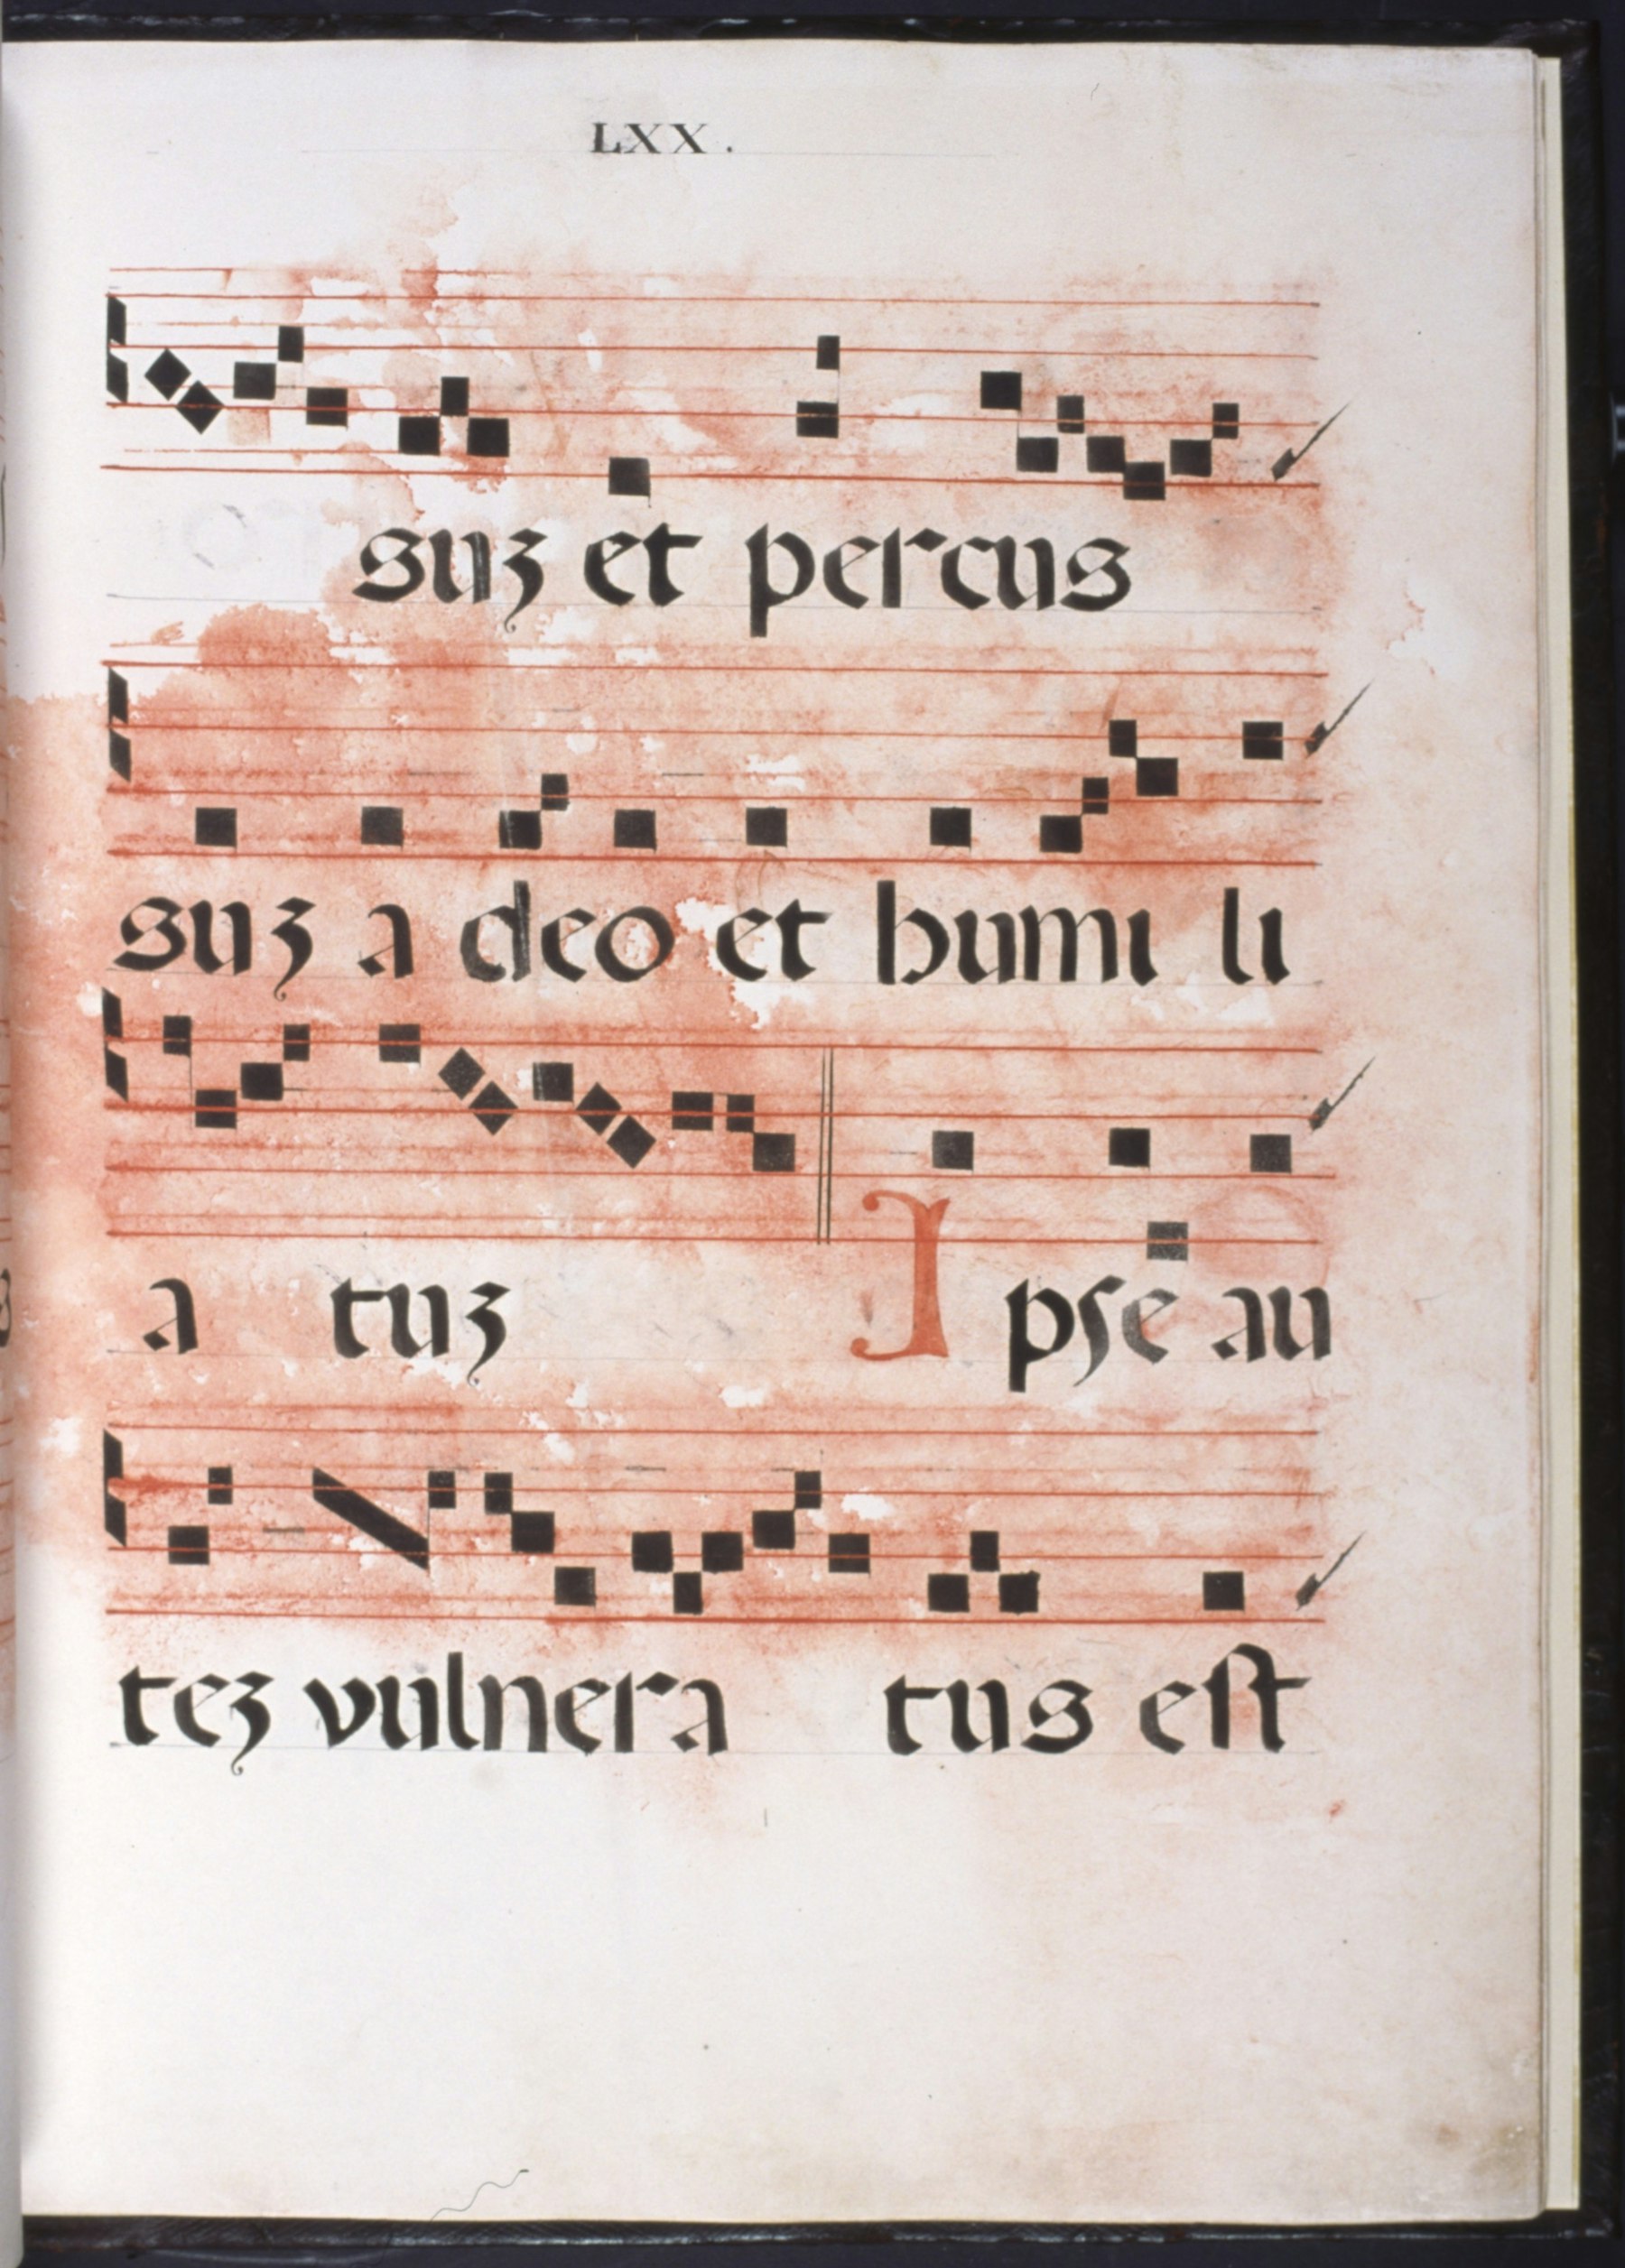 LXX.
suz et percus
suz a deo et humi li
a tuz Ipse au
tez vulnera tus est